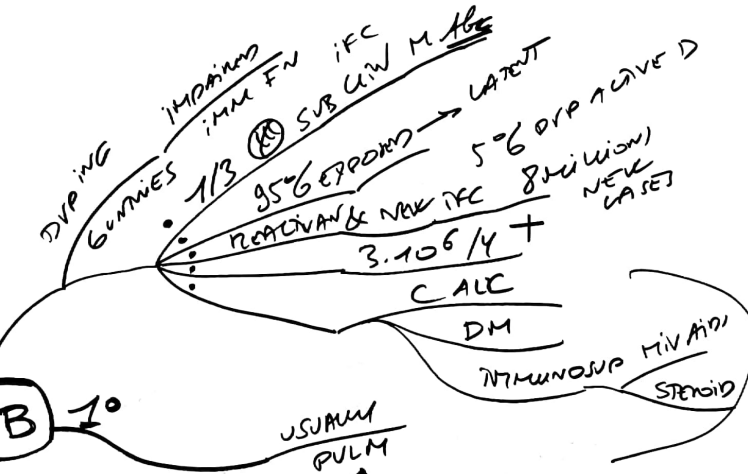 IMPAIRED
IMM FN
DVPING
COUNTRIES
1/3
SUB CLIN M
IFC
95% EXPOSED → LATENT
5% DVP ACTIVE D
REACTIVAN & NEW IFC
8 MILLIONS
NEW
CASES
3.10⁶/Y +
C ALC
DM
IMMUNOSUP
HIV AIDS
STEROID
B
1°
USUALLY
PULM